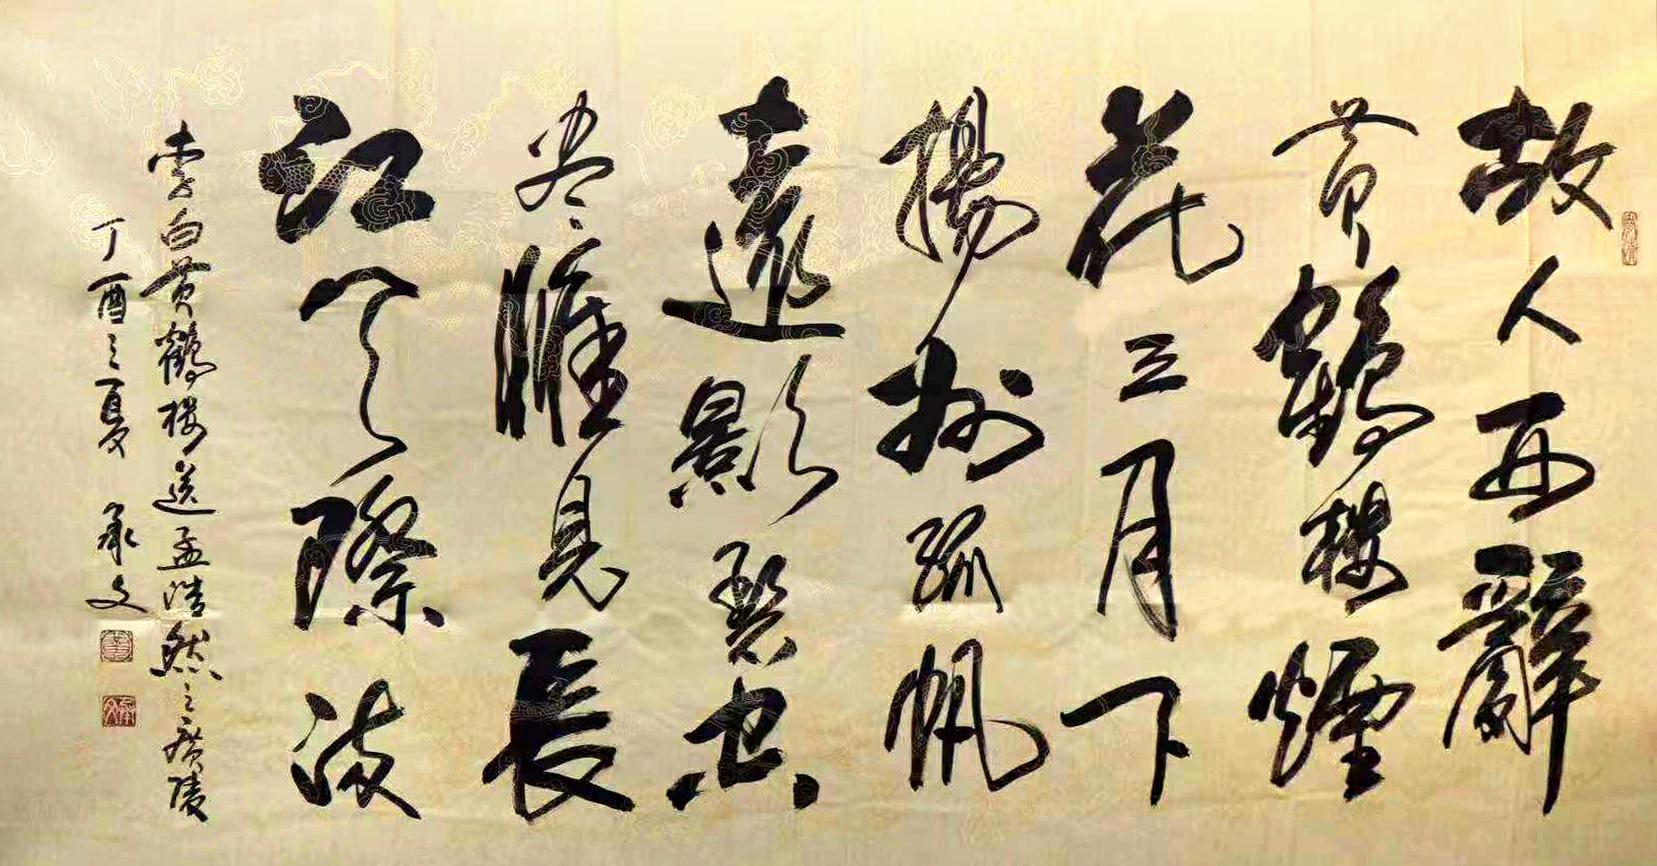 故人西辭
黄鶴楼煙
花三月下
揚州孤帆
遠影碧空
尽惟見長
江天際流
李白黄鶴楼送孟浩然之廣陵
丁酉之夏 承文